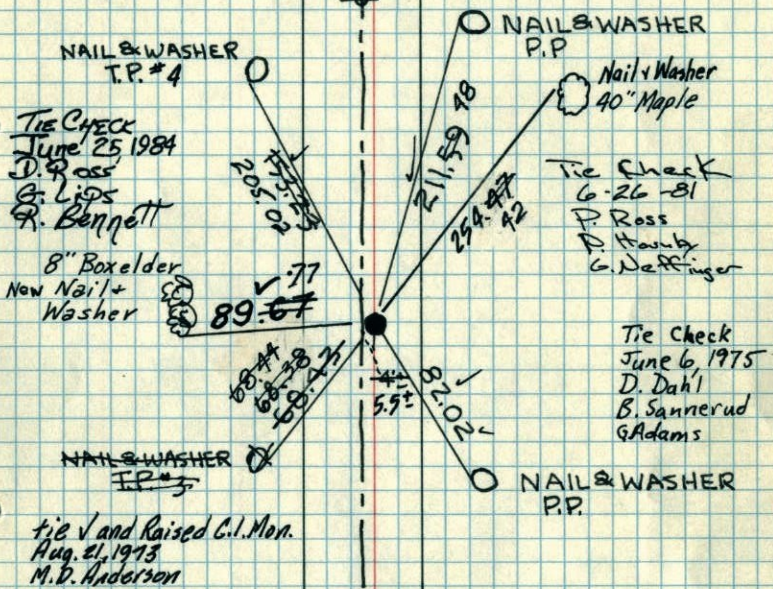 NAIL & WASHER
T.P. #4
NAIL & WASHER
P.P
Nail & Washer
40" Maple
TIE CHECK
June 25 1984
D. Ross
G. Lips
R. Bennett
205.02
211.59 48
254.47
42
Tie Check
6-26-81
P. Ross
G. Neffinger
8" Boxelder
New Nail &
Washer
.77
89.67
68.44
68.38
68.43
4'±
5.5±
82.02
Tie Check
June 6, 1975
D. Dahl
B. Sannerud
G Adams
NAIL & WASHER
NAIL & WASHER
P.P.
tie √ and Raised C.I. Mon.
Aug. 21, 1973
M.D. Anderson